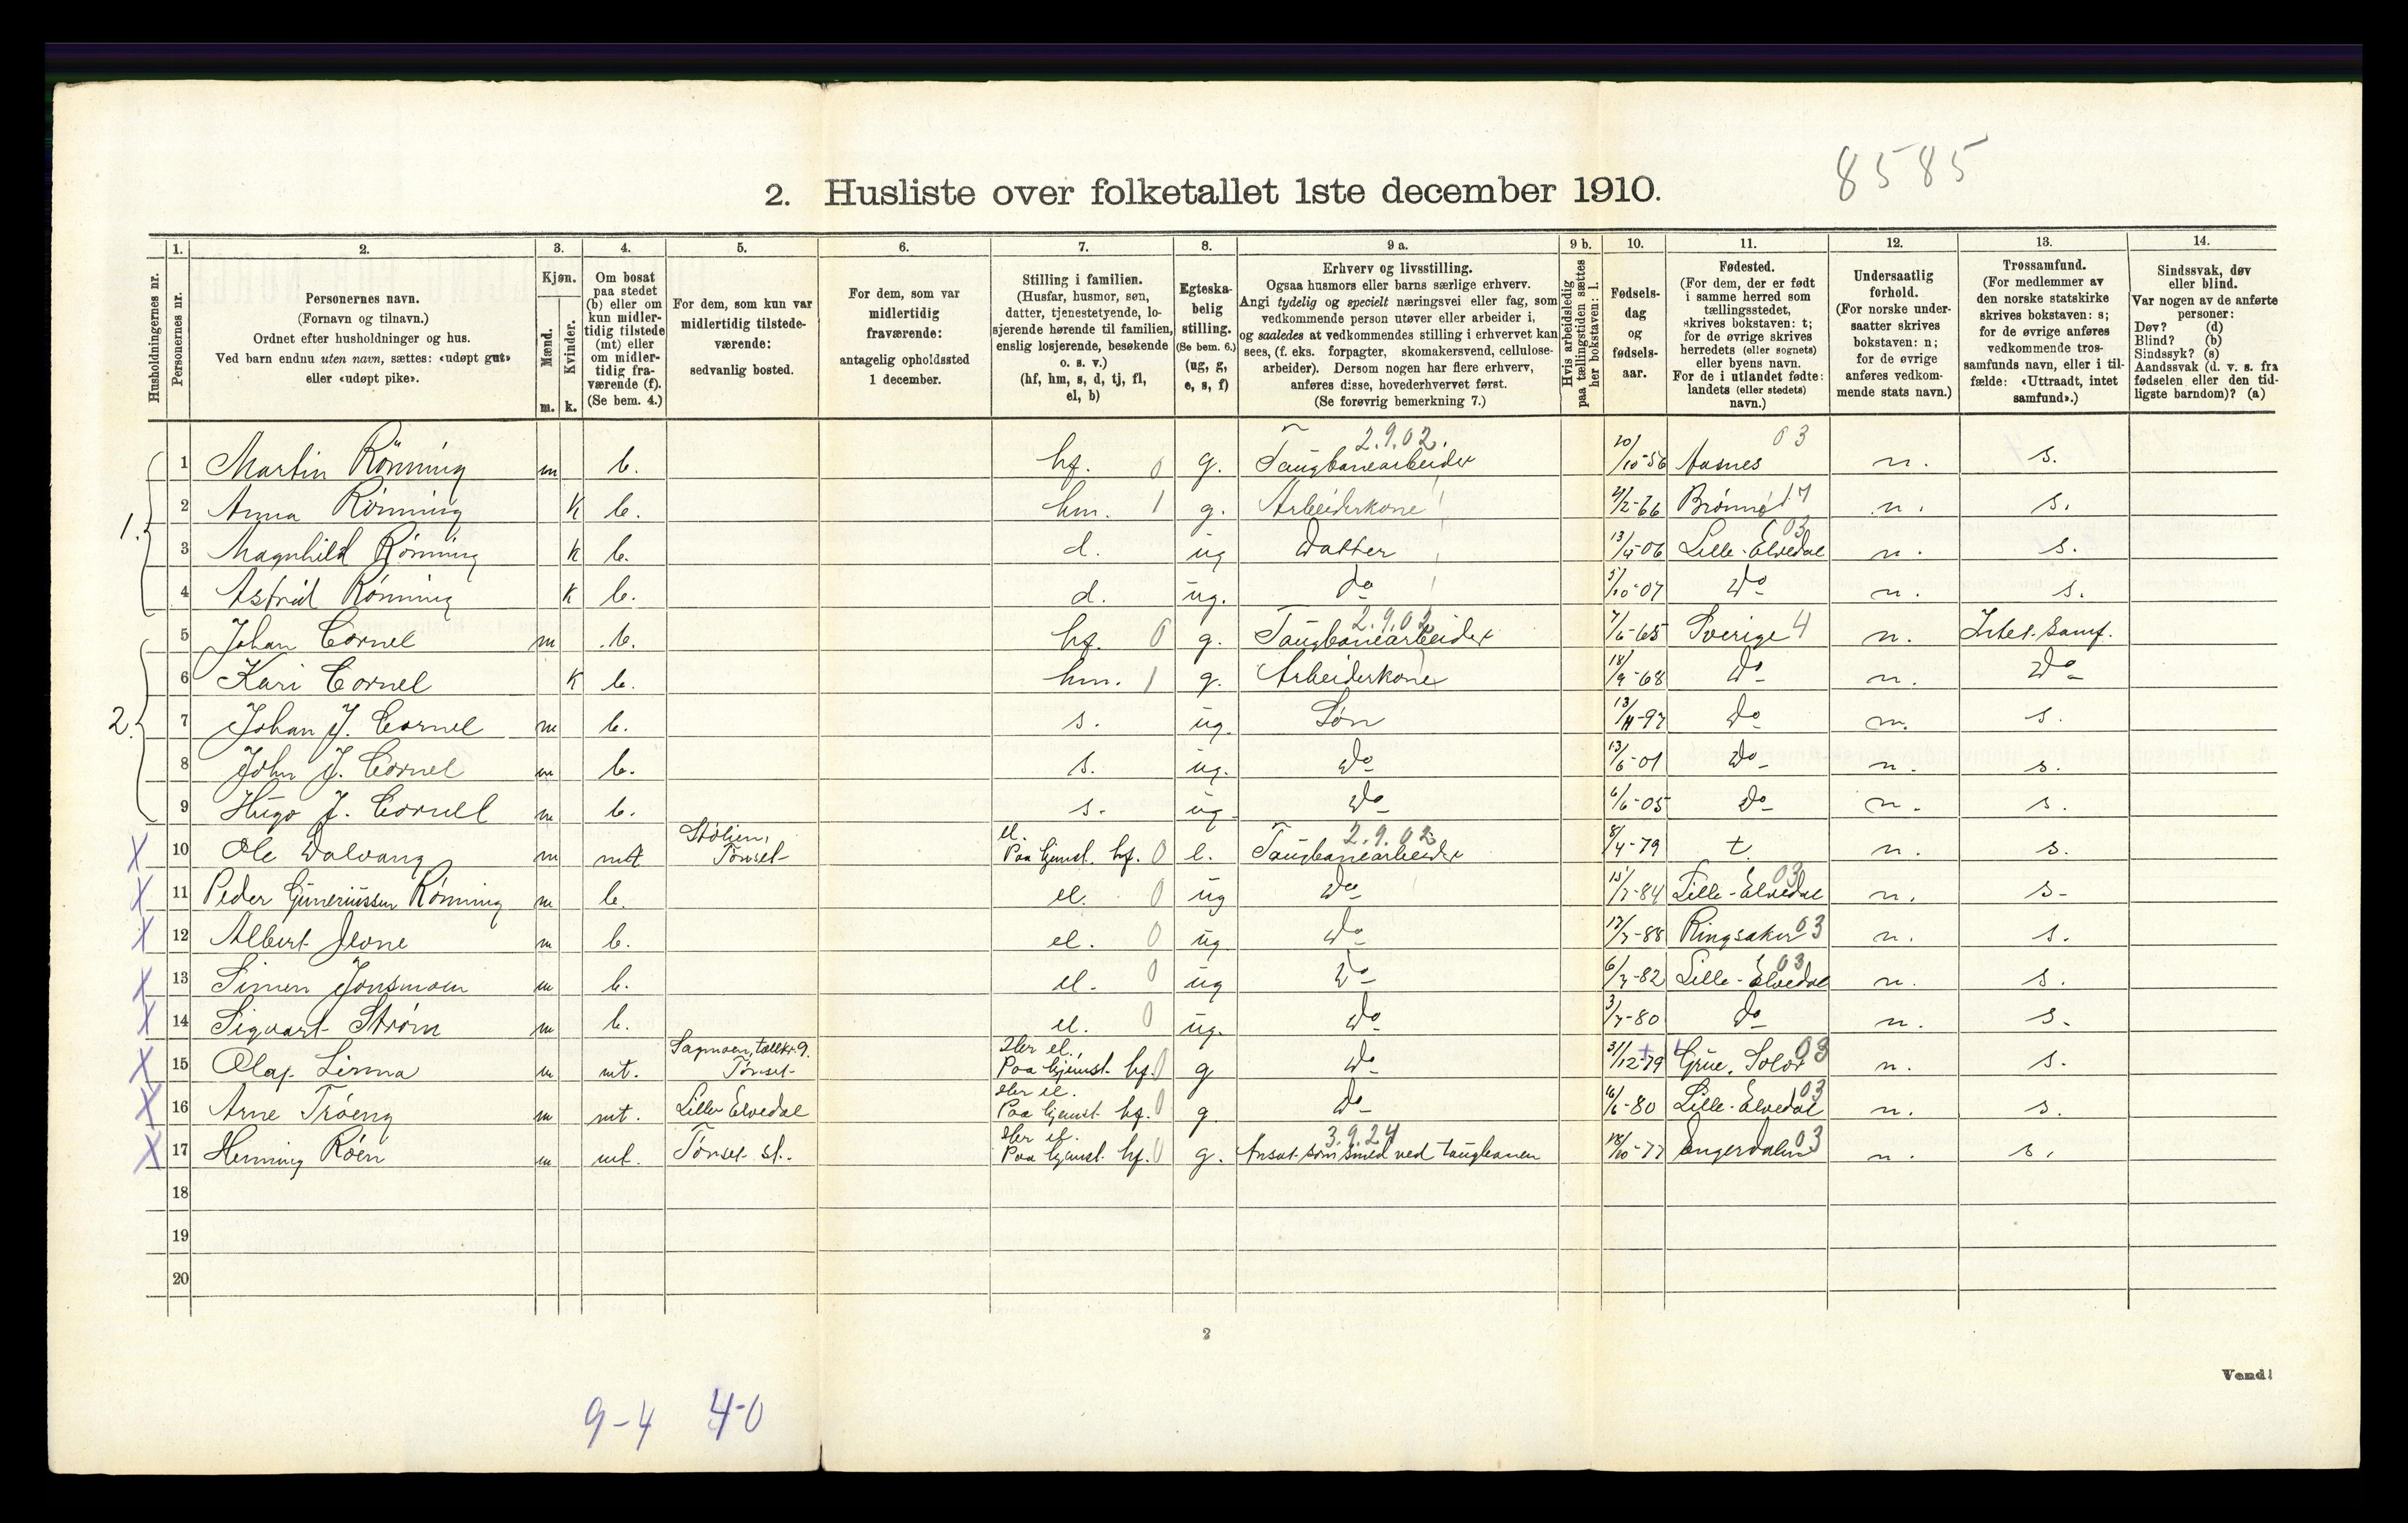 8585
2. Husliste over folketallet 1ste december 1910.
Husholdningernes nr.
1. Personernes nr.
2. Personernes navn. (Fornavn og tilnavn.) Ordnet efter husholdninger og hus. Ved barn endnu uten navn, sættes: «udøpt gut» eller «udøpt pike».
3. Kjøn. Mænd. m. Kvinder. k.
4. Om bosat paa stedet (b) eller om kun midlertidig tilstede (mt) eller om midlertidig fraværende (f). (Se bem. 4.)
5. For dem, som kun var midlertidig tilstedeværende: sedvanlig bosted.
6. For dem, som var midlertidig fraværende: antagelig opholdssted 1 december.
7. Stilling i familien. (Husfar, husmor, søn, datter, tjenestetyende, losjerende hørende til familien, enslig losjerende, besøkende o. s. v.) (hf, hm, s, d, tj, fl, el, b)
8. Egteskabelig stilling. (Se bem. 6.) (ug, g, e, s, f)
9 a. Erhverv og livsstilling. Ogsaa husmors eller barns særlige erhverv. Angi tydelig og specielt næringsvei eller fag, som vedkommende person utøver eller arbeider i, og saaledes at vedkommendes stilling i erhvervet kan sees, (f. eks. forpagter, skomakersvend, cellulosearbeider). Dersom nogen har flere erhverv, anføres disse, hovederhvervet først. (Se forøvrig bemerkning 7.)
9 b. Hvis arbeidsledig paa tællingstiden sættes her bokstaven: l.
10. Fødselsdag og fødselsaar.
11. Fødested. (For dem, der er født i samme herred som tællingsstedet, skrives bokstaven: t; for de øvrige skrives herredets (eller sognets) eller byens navn. For de i utlandet fødte: landets (eller stedets) navn.)
12. Undersaatlig forhold. (For norske undersaatter skrives bokstaven: n; for de øvrige anføres vedkommende stats navn.)
13. Trossamfund. (For medlemmer av den norske statskirke skrives bokstaven: s; for de øvrige anføres vedkommende trossamfunds navn, eller i tilfælde: «Uttraadt, intet samfund».)
14. Sindssvak, døv eller blind. Var nogen av de anførte personer: Døv? (d) Blind? (b) Sindssyk? (s) Aandssvak (d. v. s. fra fødselen eller den tidligste barndom)? (a)
1. 1 Martin Rönning m b. hf. 0 g. Taugbanearbeider 2.9.02. 20/10-56 Aasnes 03 n. s.
2 Anna Rönning K b. hm. 1 g. Arbeiderkone 4/2-66 Brönnø 17 n. s.
3 Magnhild Rönning K b. d. ug Datter 13/4-06 Lille-Elvedal 03 n. s.
4 Astrid Rönning K b. d. ug. do 5/10-07 Do n. s.
2. 5 Johan Cornel m b. hf. 0 g. Taugbanearbeider 2.9.02 7/6-65 Sverige 4 n. Intet. Samf.
6 Kari Cornel K b. hm. 1 g. Arbeiderkone 18/9-68 Do n. Do
7 Johan J. Cornel m b. s. ug. Søn 13/11-97 Do n. s.
8 John J. Cornel m b. s. ug. Do 13/6-01 Do n. s.
9 Hugo J. Cornel m b. s. ug Do 6/6-05 Do n. s.
X 10 Ole Dalvang m mt Stölien, Tönset el. Paa tjenst. hf. 0 e. Taugbanearbeider 2.9.02 8/4-79 t. n. s.
X 11 Peder Guneriussen Rönning m b. el. 0 ug Do 15/7-84 Lille-Elvedal 03 n. s
X 12 Albert Jevne m b. el. 0 ug Do 17/7-88 Ringsaker 03 n. s.
X 13 Simen Jonsmoen m b. el. 0 ug Do 6/7-82 Lille-Elvedal 03 n. s.
X 14 Sigvart Ström m b. el. 0 ug. Do 3/7-80 Do n. s.
X 15 Olaf Linna m mt. Sagmoen, tællkr. 9. Tönset Her el. Paa tjenst. hf. 0 g Do 31/12-79 Grue, Solør 03 n. s.
X 16 Arne Tröeng m mt. Lille Elvedal Her el. Paa tjenst hf. 0 g. Do 16/6-80 Lille-Elvedal 03 n. s.
X 17 Henning Röen m mt. Tönset st. Her el. Paa tjenst. hf. 0 g. Ansat som smed ved taugbanen 3.9.24 18/10-77 Engerdalen 03 n. s.
18
19
20
2
Vend!
9-4 4-0